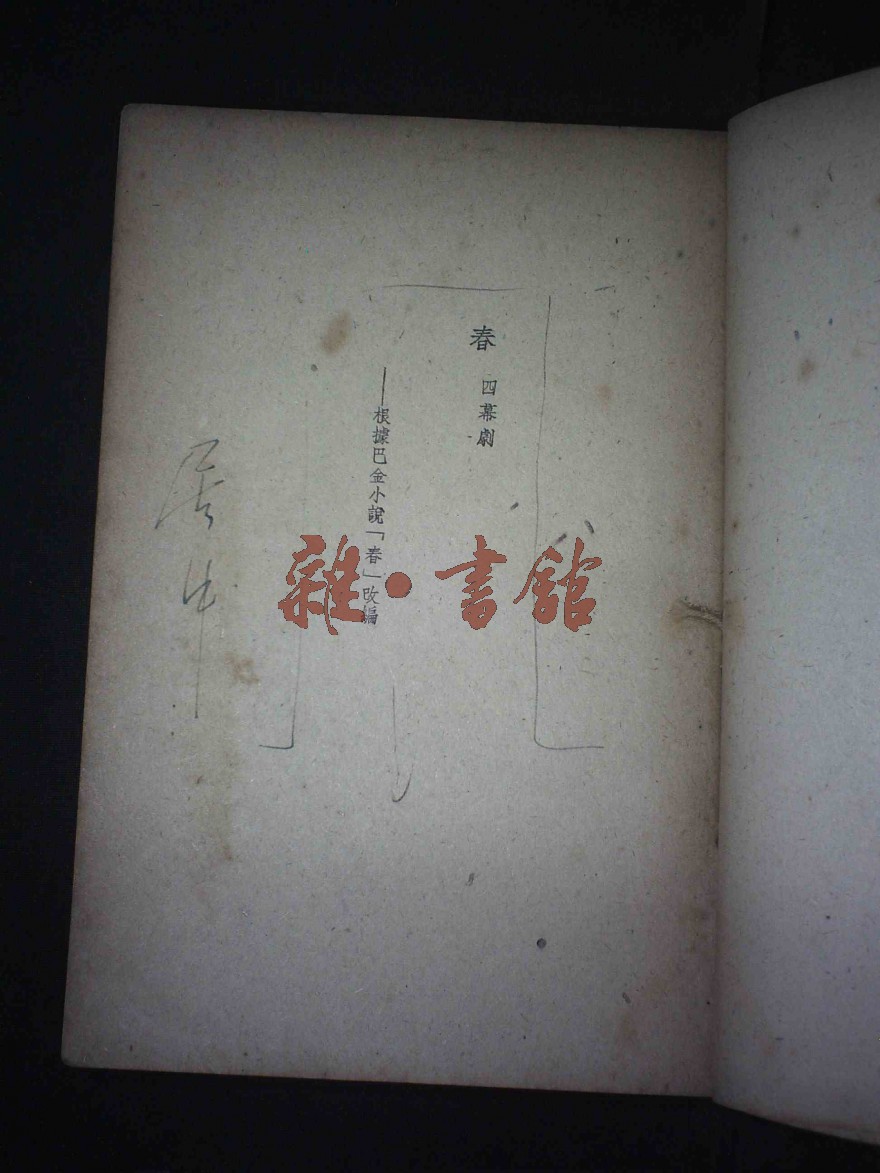 春 四幕劇
——根據巴金小說「春」改編
雜·書舘